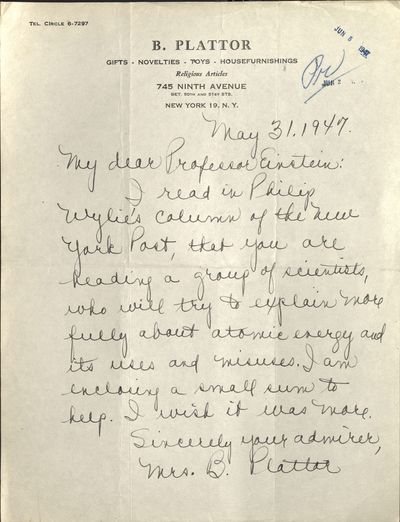 TEL. CIRCLE 6-7297
JUN 5 1947
B. PLATTOR
GIFTS · NOVELTIES · TOYS · HOUSEFURNISHINGS
Religious Articles
745 NINTH AVENUE
BET. 50TH AND 51ST STS.
NEW YORK 19, N. Y.
JUN 2
May 31. 1947.
My dear Professor Einstein:
I read in Philip
Wylie's column of the New
York Post, that you are
heading a group of scientists,
who will try to explain more
fully about atomic energy and
its uses and misuses. I am
enclosing a small sum to
help. I wish it was more.
Sincerely your admirer,
Mrs. B. Plattor